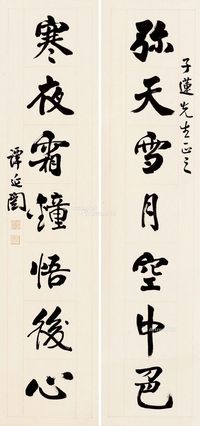 子蓮先生正之
弥天雪月空中色
寒夜霜鐘悟後心
譚延闓